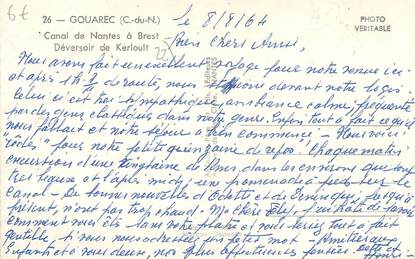 6€
26 — GOUAREC (C.-du-N.)
Canal de Nantes à Brest
Déversoir de Kerloult
PHOTO
VERITABLE
le 8/8/64
Bien Chers Amis,
Nous avons fait un excellent voyage pour notre venue ici
et après de route, nous étions devant notre logis
Celui ci est très sympathique, ambiance calme, fréquenté
par des gens classiques dans notre genre. Enfin tout à fait ce qu'il
nous fallait et notre séjour a bien commencé - Nous voici
"rodés" pour notre petite quinzaine de repos. Chaque matin
excursion d'une vingtaine de Kms, dans les environs que l'on
très beaux et l'après midi, une promenade à pieds sur le
Canal - De bonnes nouvelles d'Odette et de Jusqu'à
présent, n'ont pas trop chaud - Ma chère
comment vous êtes dans votre et vous seriez tout à fait
gentille si nous adressiez un petit mot - Amitiés aux
Enfants et à vous deux, nos plus affectueuses pensées.